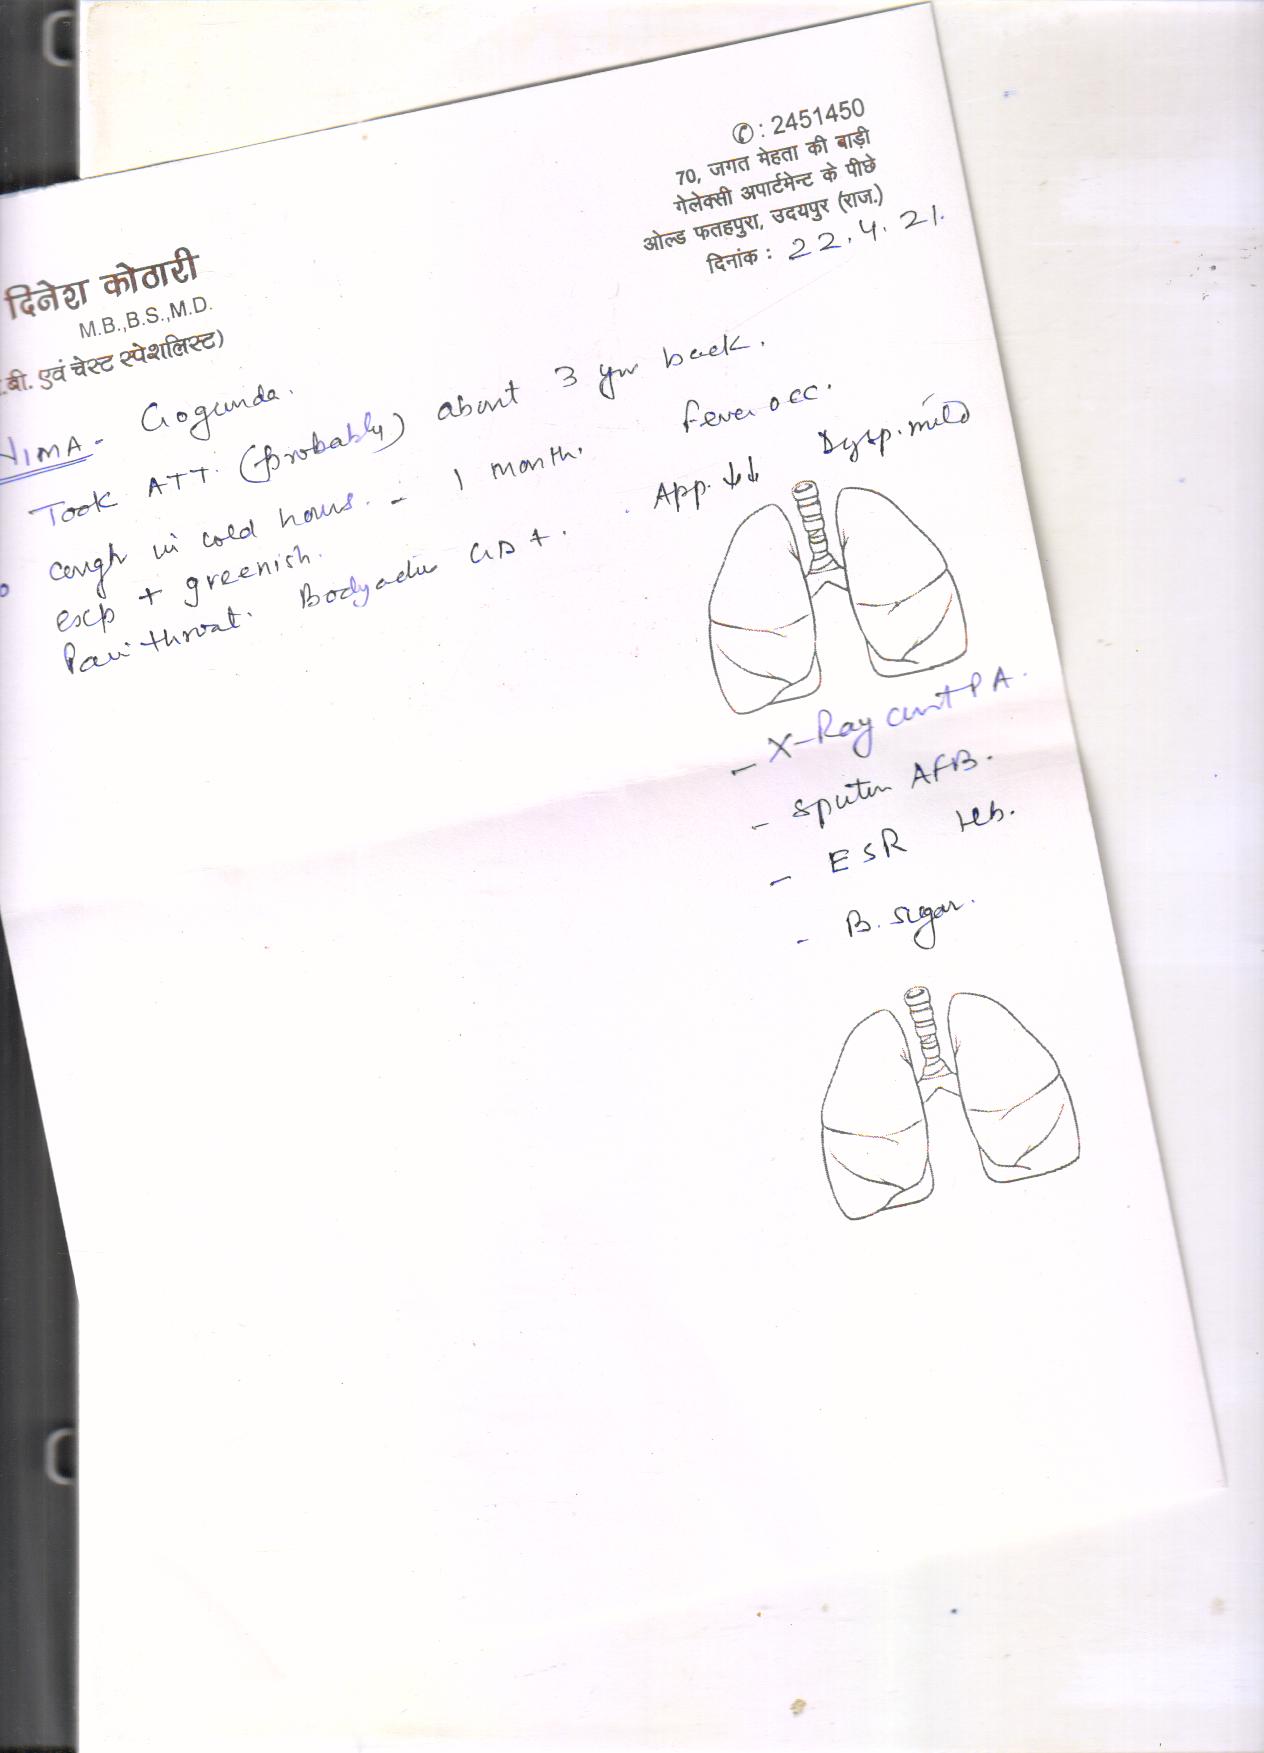 ✆ : 2451450
70, जगत मेहता की बाड़ी
गेलेक्सी अपार्टमेन्ट के पीछे
ओल्ड फतहपुरा, उदयपुर (राज.)
दिनांक : 22.4.21.
दिनेश कोठारी
M.B.,B.S.,M.D.
.बी. एवं चेस्ट स्पेशलिस्ट)
Gogunda.
Took ATT. (probably) about 3 yr back.
cough in cold hours. - 1 month. fever occ.
exp + greenish. App. ↓↓ Dysp. mild
Pain throat. Bodyache +.
- X-Ray PA.
- Sputum AFB.
- ESR Hb.
- B. Sugar.